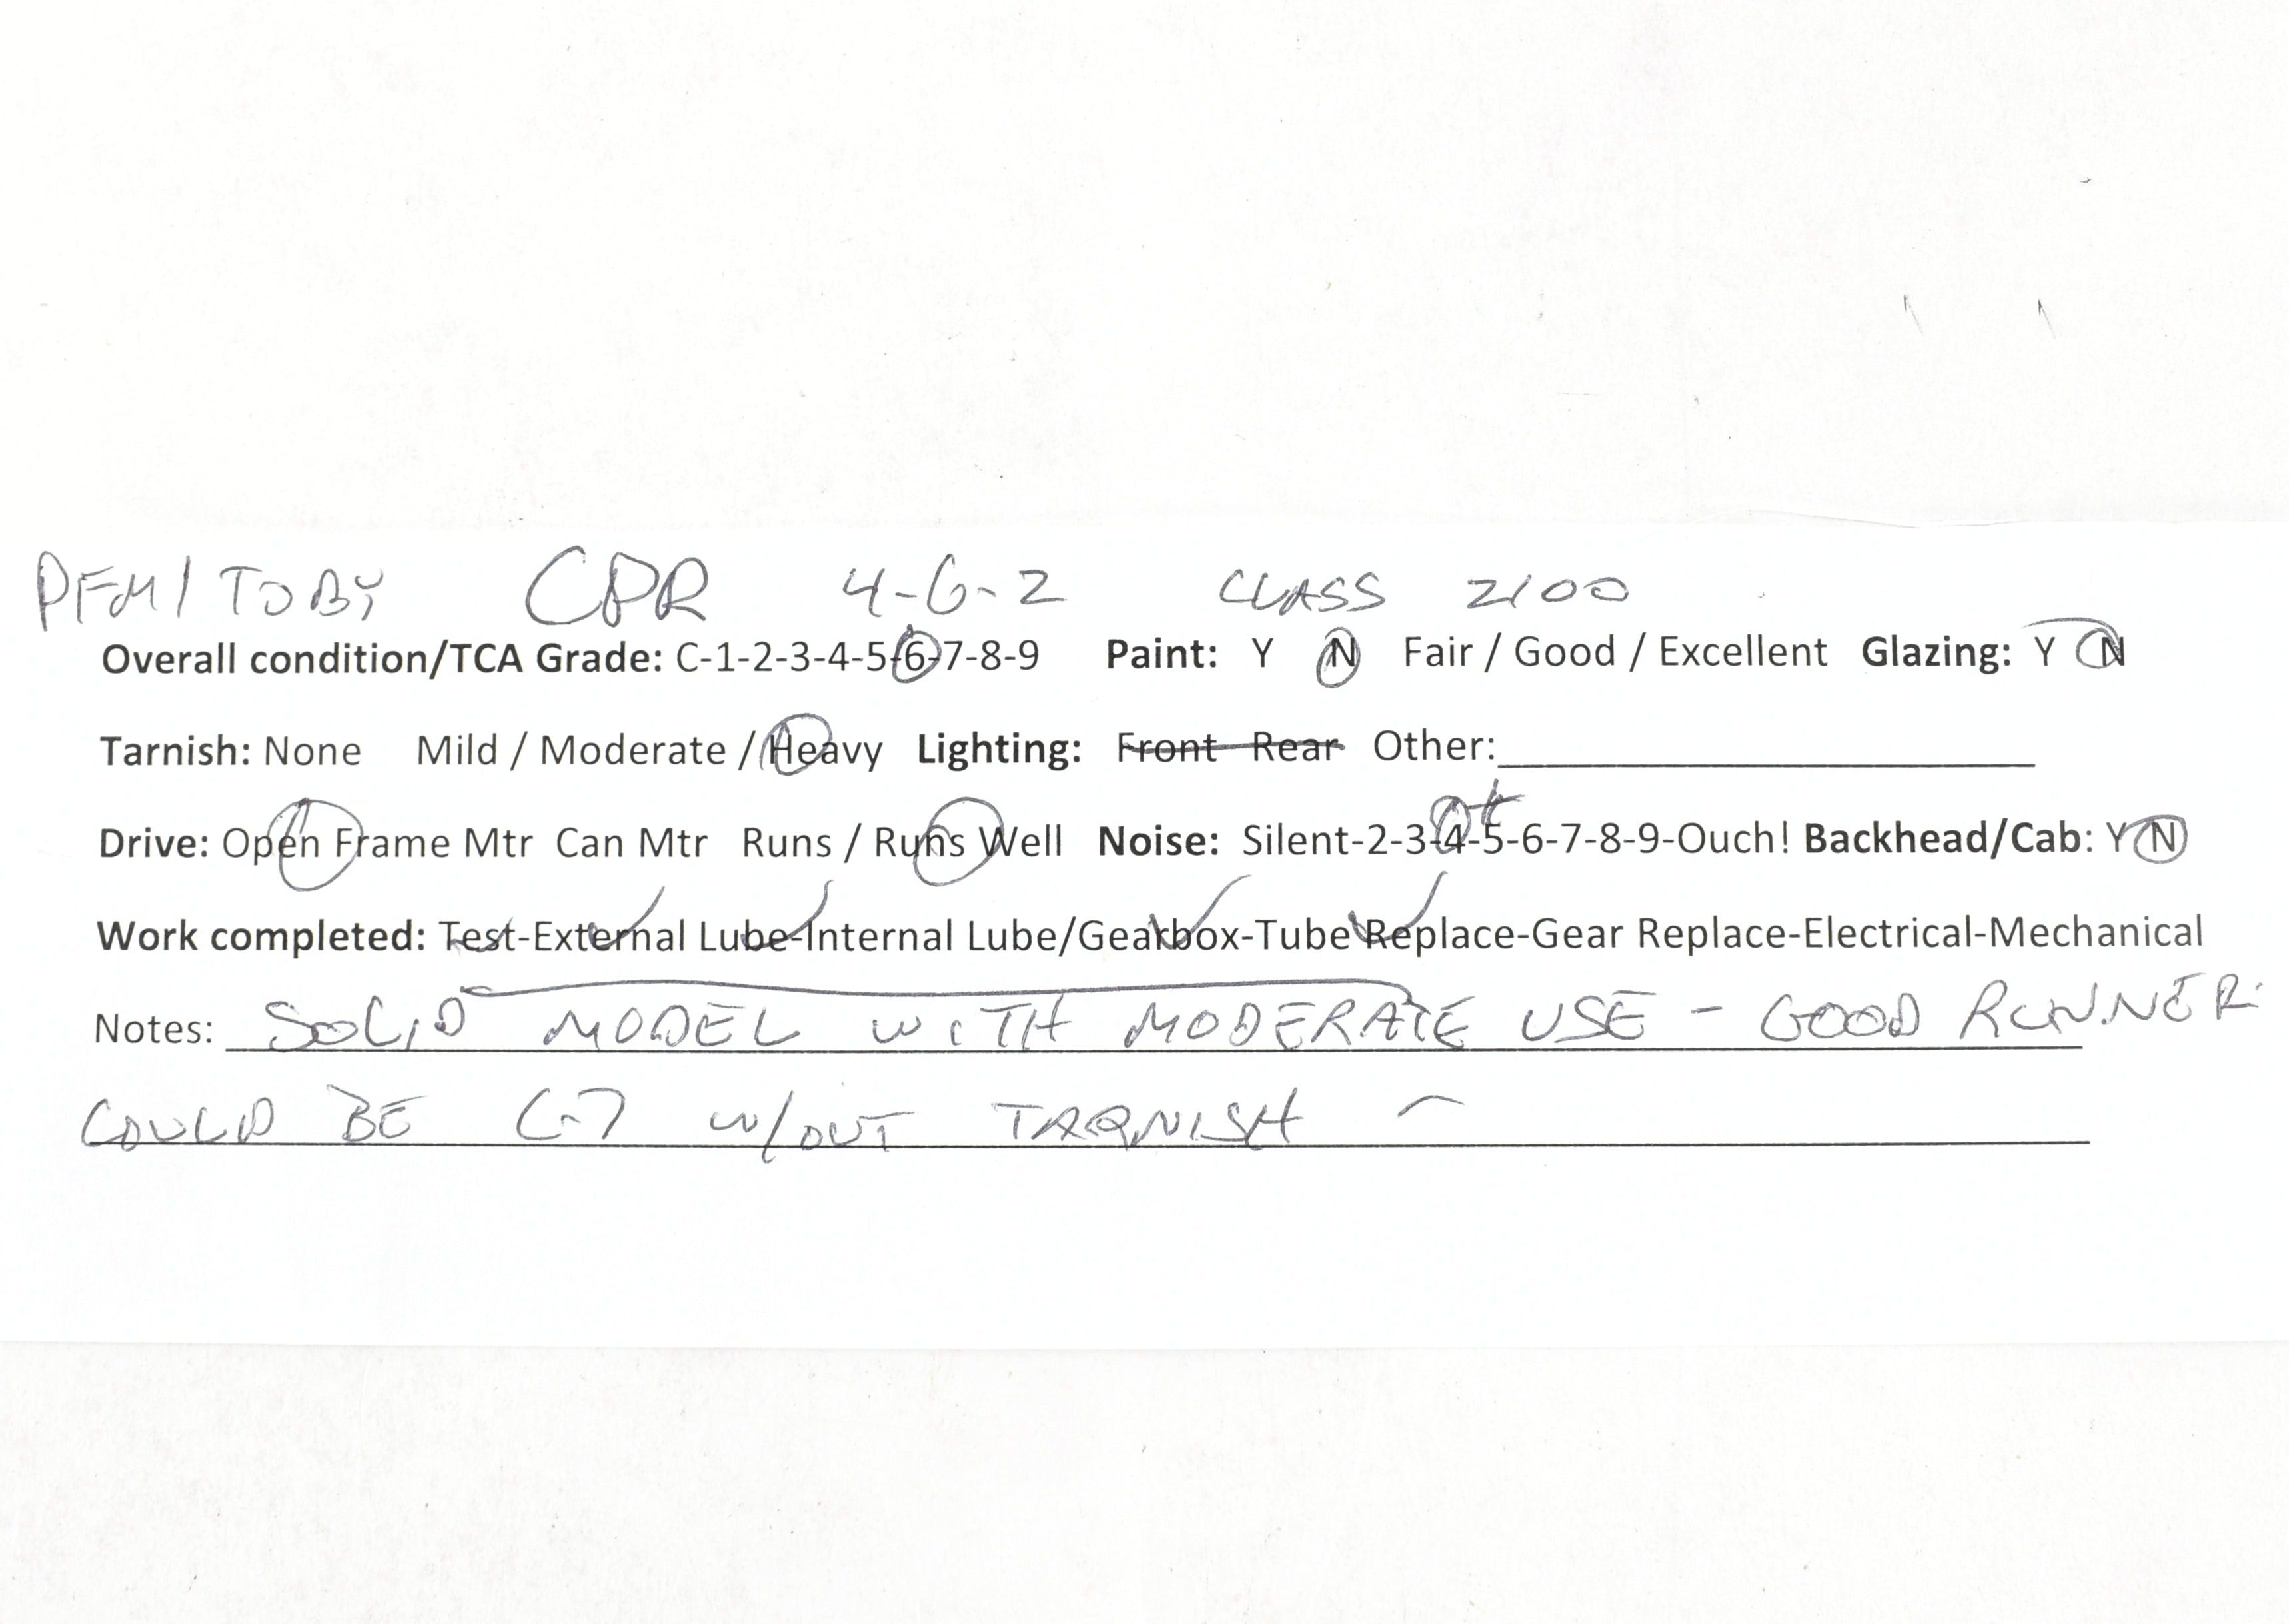 PFM/TOBY CPR 4-6-2 CLASS 2100
Overall condition/TCA Grade: C-1-2-3-4-5-6-7-8-9 Paint: Y N Fair / Good / Excellent Glazing: Y N
Tarnish: None Mild / Moderate / Heavy Lighting: Front Rear Other:
Drive: Open Frame Mtr Can Mtr Runs / Runs Well Noise: Silent-2-3-4-5-6-7-8-9-Ouch! Backhead/Cab: Y N
Work completed: Test-External Lube-Internal Lube/Gearbox-Tube Replace-Gear Replace-Electrical-Mechanical
Notes: SOLID MODEL WITH MODERATE USE - GOOD RUNNER
COULD BE C-7 W/OUT TARNISH